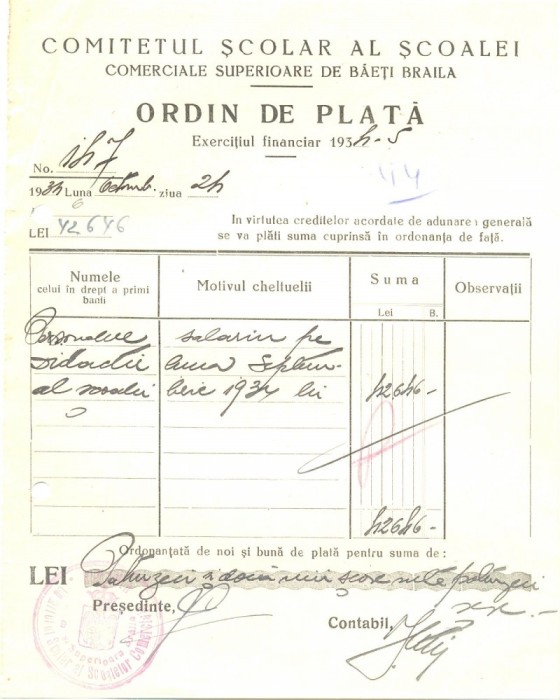 COMITETUL ȘCOLAR AL ȘCOALEI
COMERCIALE SUPERIOARE DE BĂEȚI BRAILA
ORDIN DE PLATĂ
Exercițiul financiar 1934-5
No. 147
44
1934 Luna Octomb. ziua 24
LEI 42646
In virtutea creditelor acordate de adunarea generală
se va plăti suma cuprinsă în ordonanța de față.
Numele
celui în drept a primi
banii
Motivul cheltuelii
Suma
Lei B.
Observații
Personalul salariu pe
didactic luna Septem-
al școalei brie 1934 lei 42646-
42646-
Ordonanțată de noi și bună de plată pentru suma de:
LEI Patruzeci și două mii șase sute patruzeci
Președinte,
Contabil,